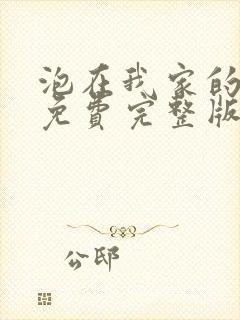 泡在我家的
免費完整版
公邸